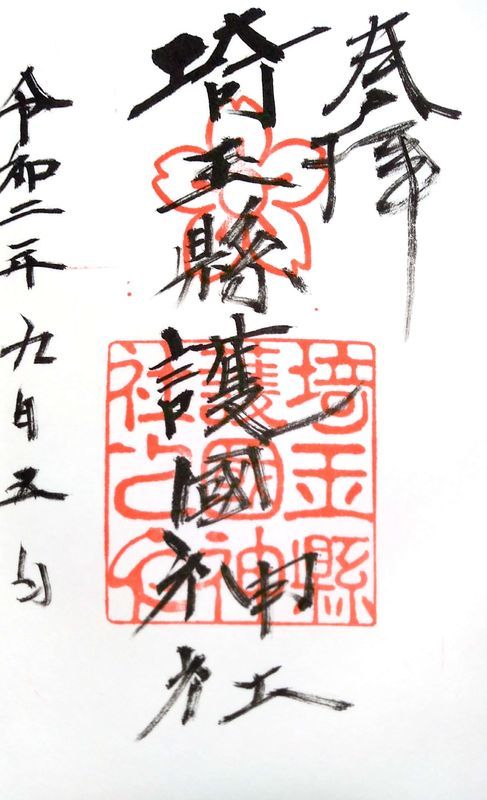 奉拝
埼玉縣護國神社
埼玉縣
護國神
社之印
令和二年九月五日